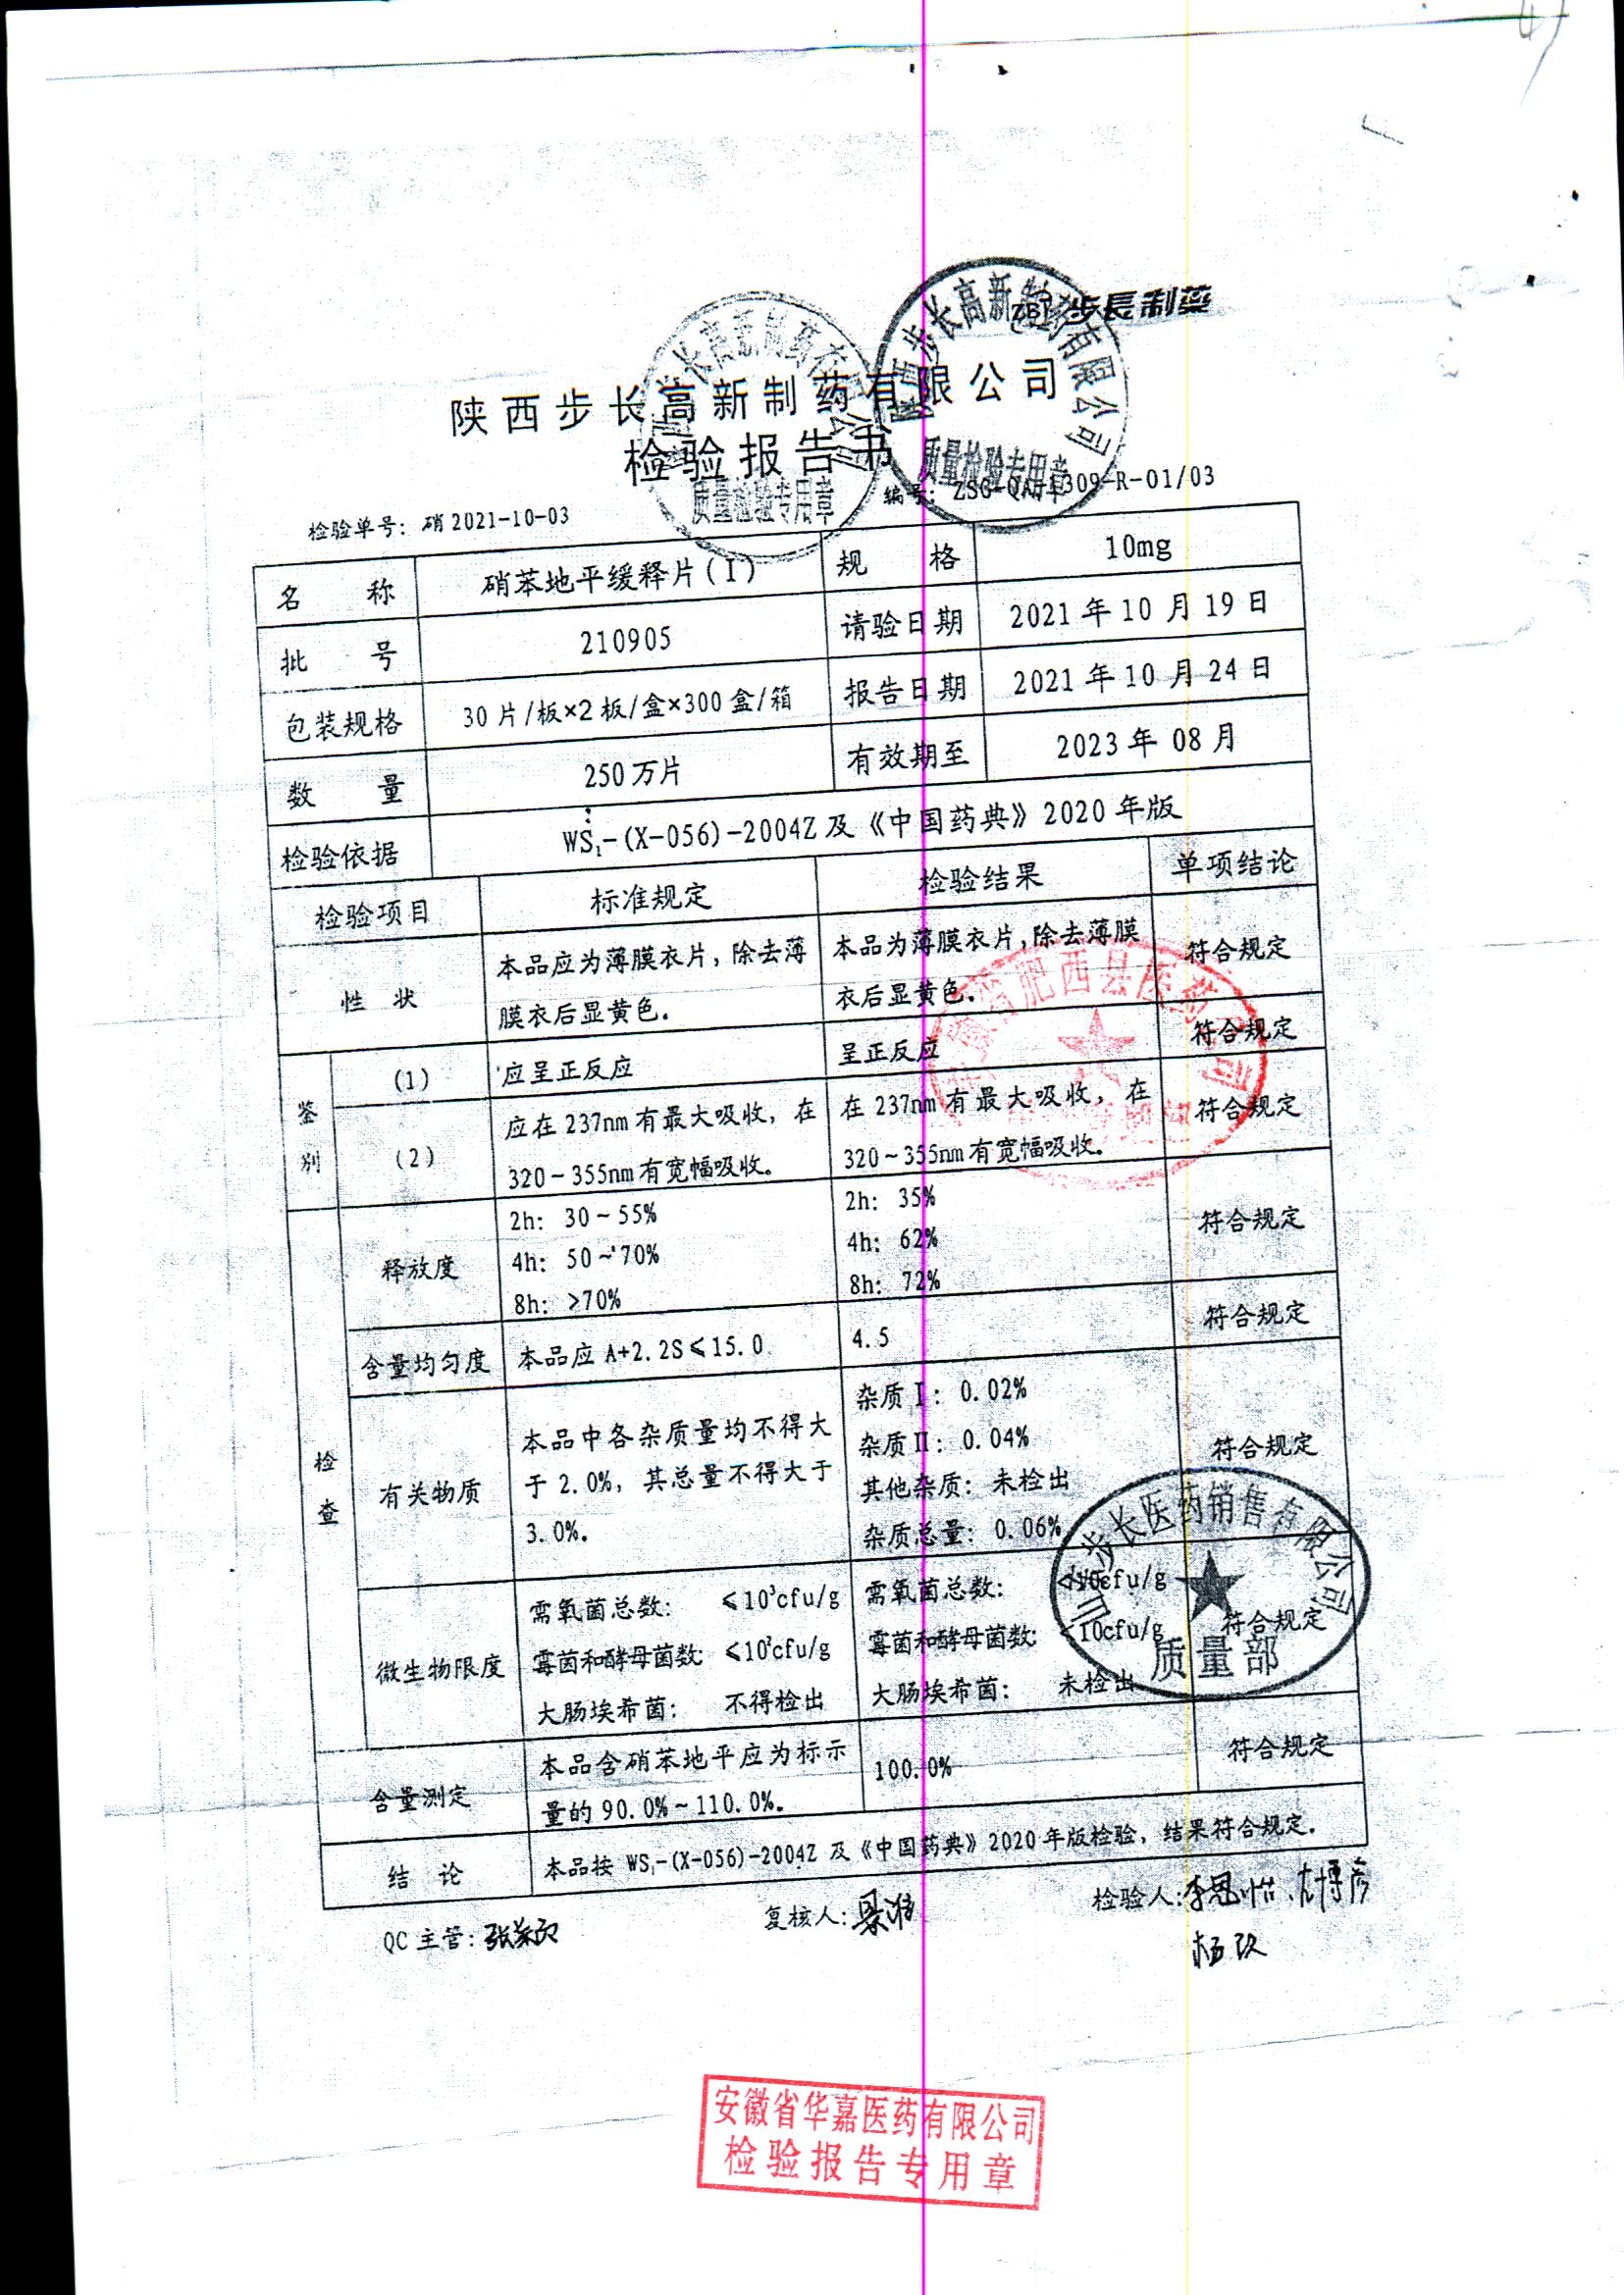 步長制药
陕西步长高新制药有限公司
检验报告书
质量检验专用章
质量检验专用章
检验单号：硝2021-10-03
编号：ZSG-QA-1309-R-01/03
名 称 硝苯地平缓释片(I) 规 格 10mg
批 号 210905 请验日期 2021年10月19日
包装规格 30片/板×2板/盒×300盒/箱 报告日期 2021年10月24日
数 量 250万片 有效期至 2023年08月
检验依据 WS₁-(X-056)-2004Z及《中国药典》2020年版
检验项目 标准规定 检验结果 单项结论
性 状 本品应为薄膜衣片，除去薄 本品为薄膜衣片，除去薄膜 符合规定
膜衣后显黄色。 衣后显黄色。
鉴别 (1) 应呈正反应 呈正反应 符合规定
(2) 应在237nm有最大吸收，在 在237nm有最大吸收，在 符合规定
320~355nm有宽幅吸收。 320~355nm有宽幅吸收。
检查 释放度 2h: 30~55% 2h: 35% 符合规定
4h: 50~70% 4h: 62%
8h: >70% 8h: 72%
含量均匀度 本品应A+2.2S≤15.0 4.5 符合规定
有关物质 本品中各杂质量均不得大 杂质I: 0.02% 符合规定
于2.0%，其总量不得大于 杂质II: 0.04%
3.0%。 其他杂质：未检出
杂质总量：0.06%
微生物限度 需氧菌总数： ≤10³cfu/g 需氧菌总数： <10cfu/g 符合规定
霉菌和酵母菌数: ≤10²cfu/g 霉菌和酵母菌数: <10cfu/g
大肠埃希菌： 不得检出 大肠埃希菌： 未检出
含量测定 本品含硝苯地平应为标示 100.0% 符合规定
量的90.0%~110.0%。
结 论 本品按WS₁-(X-056)-2004Z及《中国药典》2020年版检验，结果符合规定。
山东步长医药销售有限公司
质量部
QC主管：
复核人：
检验人：
安徽省华嘉医药有限公司
检验报告专用章